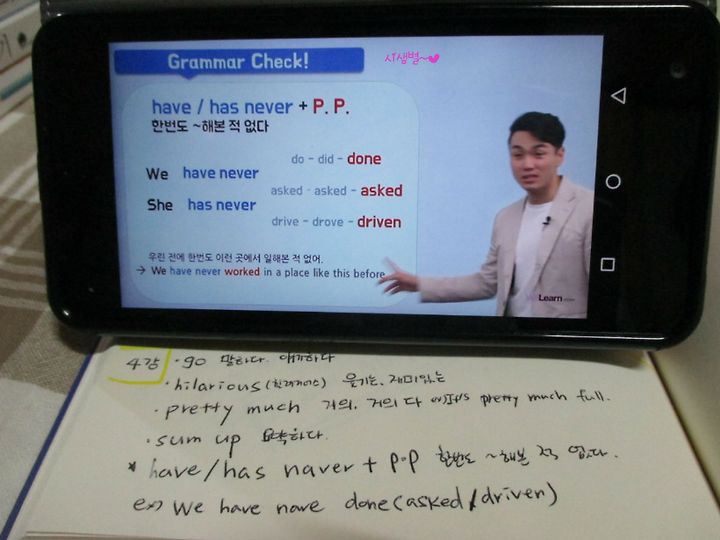 Grammar Check!
시샘별~♥
have / has never + P. P.
한번도 ~해본 적 없다
do - did - done
We have never
asked - asked - asked
She has never
drive - drove - driven
우린 전에 한번도 이런 곳에서 일해본 적 없어.
→ We have never worked in a place like this before
Learn
4강 · go 말하다. 얘기하다
· hilarious(힐래리어스) 웃기는, 재미있는
· pretty much 거의, 거의 다 ex) It's pretty much full.
· sum up 요약하다.
* have/has naver + p.p 한번도 ~해본 적 없다.
ex) We have nave done(asked/driven)